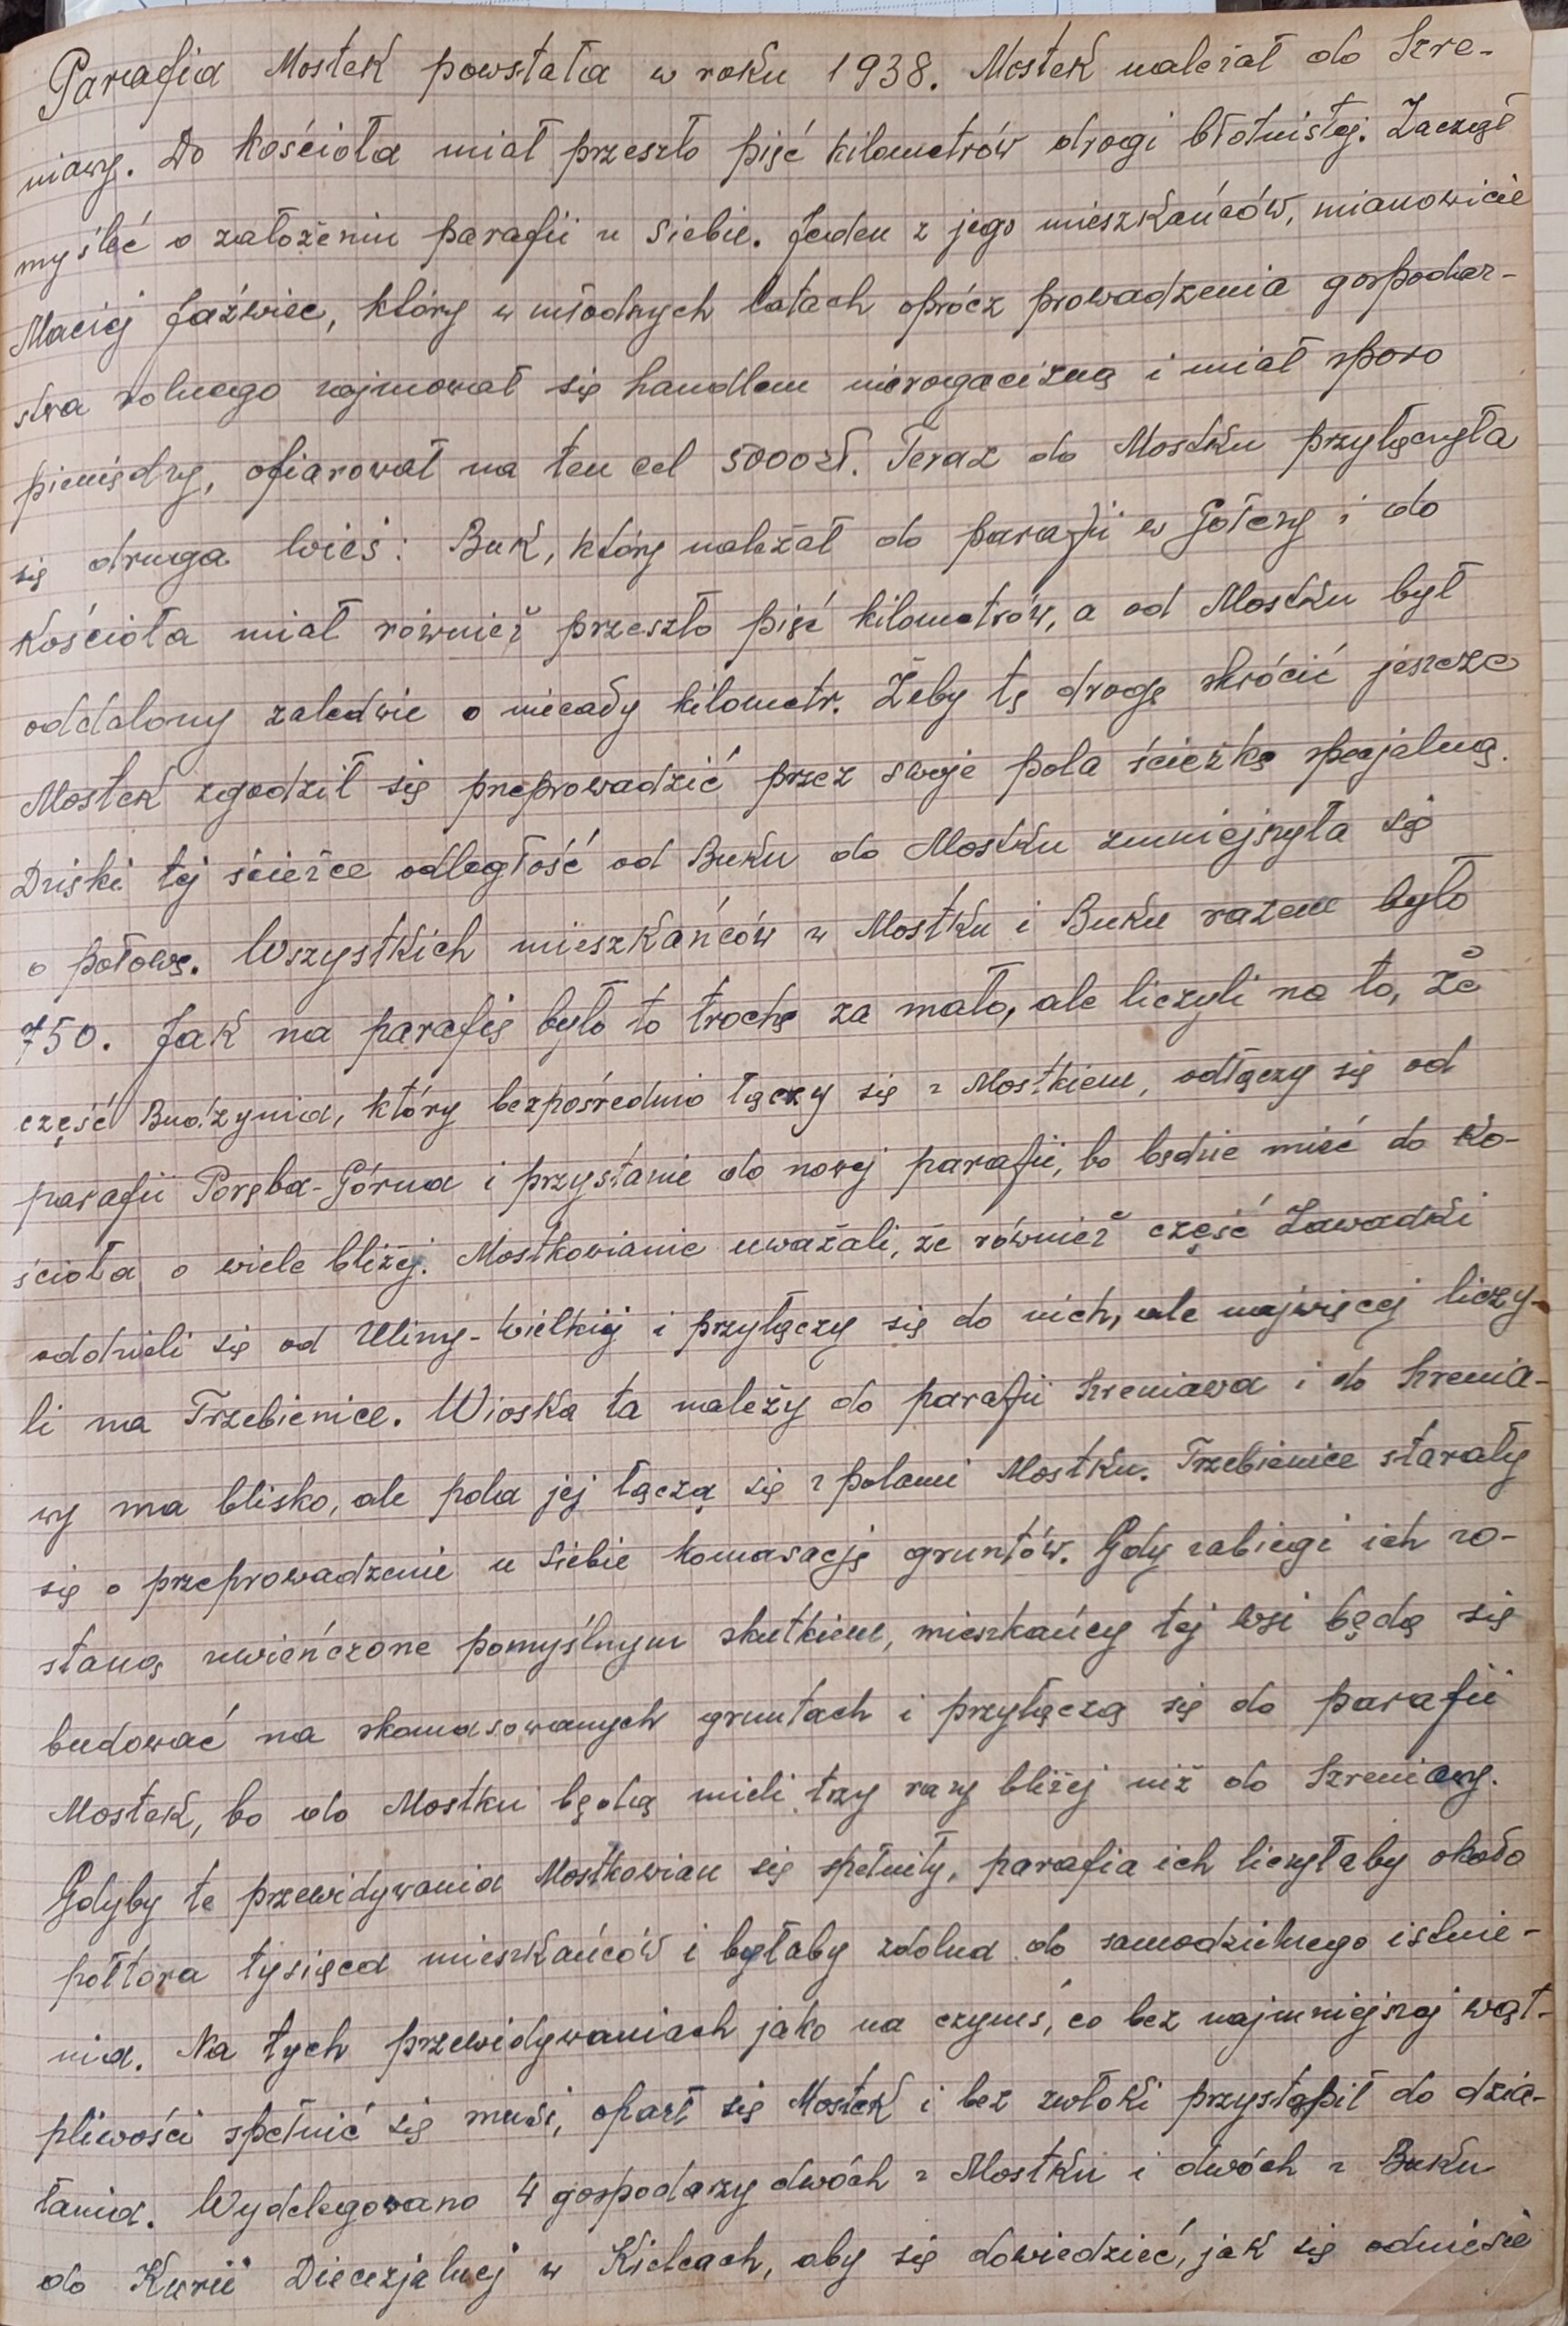 Parafia Mostek powstała w roku 1938. Mostek należał do Szre-
niawy. Do kościoła miał przeszło pięć kilometrów drogi błotnistej. Zaczął
myśleć o założeniu parafii u siebie. Jeden z jego mieszkańców, mianowicie
Maciej Jaźwiec, który w młodych latach oprócz prowadzenia gospodar-
stwa rolnego zajmował się handlem nierogacizną i miał sporo
pieniędzy, ofiarował na ten cel 5000 zł. Teraz do Mostku przyłączyła
się druga wieś: Buk, który należał do parafii w Gołczy i do
Kościoła miał również przeszło pięć kilometrów, a od Mostku był
oddalony zaledwie o niecały kilometr. Żeby tę drogę skrócić jeszcze
Mostek zgodził się przeprowadzić przez swoje pola ścieżkę specjalną.
Dzięki tej ścieżce odległość od Buku do Mostku zmniejszyła się
o połowę. Wszystkich mieszkańców w Mostku i Buku razem było
750. Jak na parafię było to trochę za mało, ale liczyli na to, że
część Budzynia, który bezpośrednio łączy się z Mostkiem, odłączy się od
parafii Poręba-Górna i przystanie do nowej parafii, bo będzie mieć do ko-
ścioła o wiele bliżej. Mostkowianie uważali, że również część Zawadki
oddzieli się od Uliny-Wielkiej i przyłączy się do nich, ale najwięcej liczy-
li na Trzebienice. Wioska ta należy do parafii Szreniawa i do Szrenia-
wy ma blisko, ale pola jej łączą się z polami Mostku. Trzebienice starały
się o przeprowadzenie u siebie komasację gruntów. Gdy zabiegi ich zo-
staną uwieńczone pomyślnym skutkiem, mieszkańcy tej wsi będą się
budować na skomasowanych gruntach i przyłączą się do parafii
Mostek, bo do Mostku będą mieli trzy razy bliżej niż do Szreniawy.
Gdyby te przewidywania Mostkowian się spełniły, parafia ich liczyłaby około
półtora tysiąca mieszkańców i byłaby zdolna do samodzielnego istnie-
nia. Na tych przewidywaniach jako na czymś, co bez najmniejszej wąt-
pliwości spełnić się musi, oparł się Mostek i bez zwłoki przystąpił do dzia-
łania. Wydelegowano 4 gospodarzy dwóch z Mostku i dwóch z Buku
do Kurii Diecezjalnej w Kielcach, aby się dowiedzieć, jak się odniesie